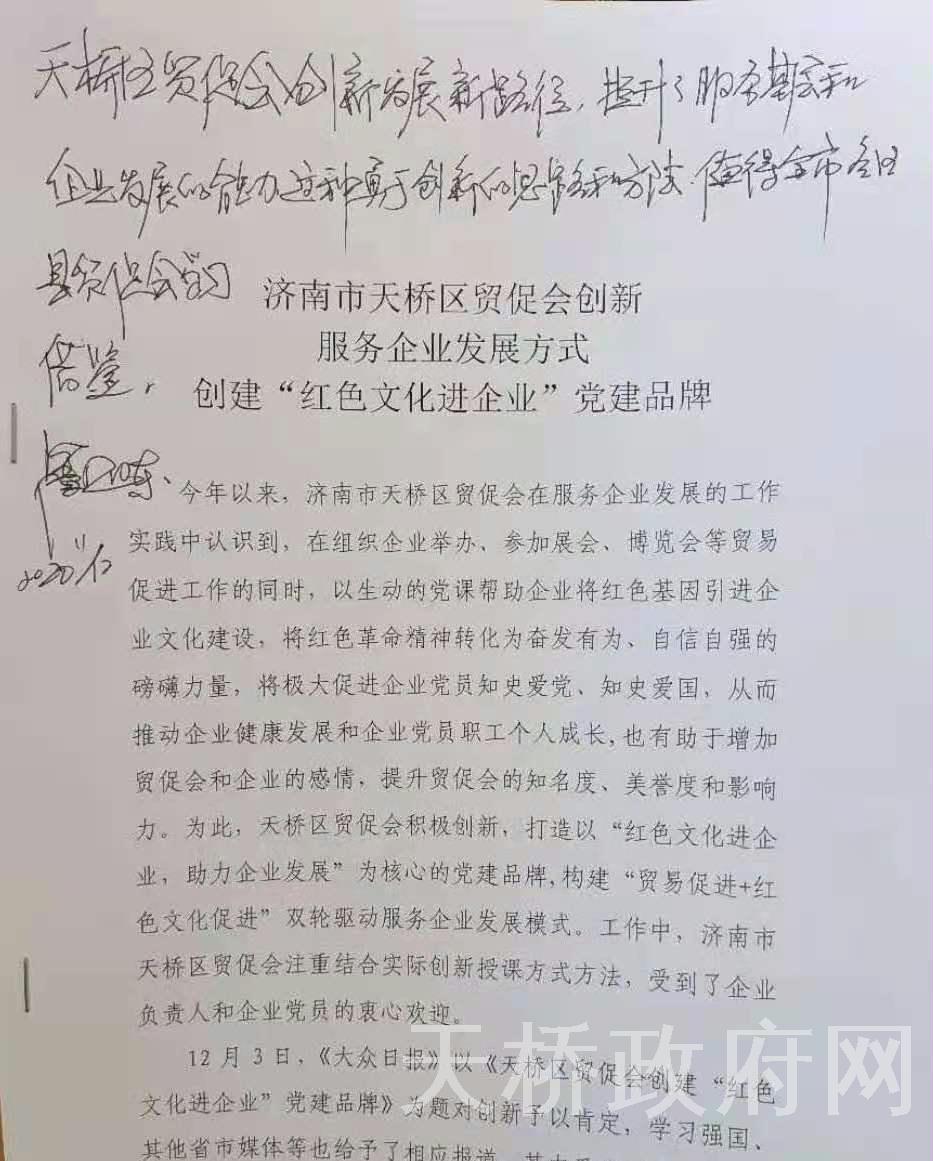 天桥区贸促会创新发展新路径，提升了服务基层和
企业发展的能力，这种勇于创新的思路和方法，值得全市各区
县贸促会学习
借鉴，
2020/12
11
济南市天桥区贸促会创新
服务企业发展方式
创建“红色文化进企业”党建品牌
今年以来，济南市天桥区贸促会在服务企业发展的工作
实践中认识到，在组织企业举办、参加展会、博览会等贸易
促进工作的同时，以生动的党课帮助企业将红色基因引进企
业文化建设，将红色革命精神转化为奋发有为、自信自强的
磅礴力量，将极大促进企业党员知史爱党、知史爱国，从而
推动企业健康发展和企业党员职工个人成长,也有助于增加
贸促会和企业的感情，提升贸促会的知名度、美誉度和影响
力。为此，天桥区贸促会积极创新，打造以“红色文化进企
业，助力企业发展”为核心的党建品牌,构建“贸易促进+红
色文化促进”双轮驱动服务企业发展模式。工作中，济南市
天桥区贸促会注重结合实际创新授课方式方法，受到了企业
负责人和企业党员的衷心欢迎。
12月3日，《大众日报》以《天桥区贸促会创建“红色
文化进企业”党建品牌》为题对创新予以肯定，学习强国、
其他省市媒体等也给予了相应报道
天桥政府网